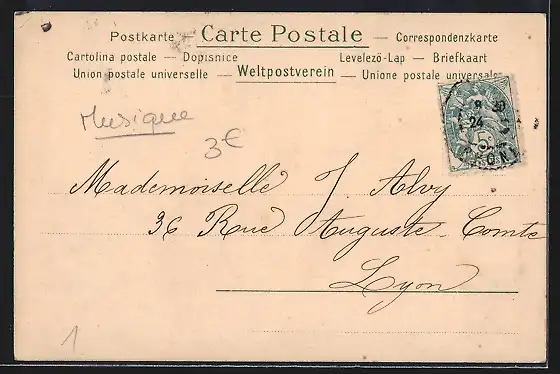 Postkarte — Carte Postale — Correspondenzkarte
Cartolina postale — Dopisnice Levelező-Lap — Briefkaart
Union postale universelle — Weltpostverein — Unione postale universale
Musique
3€
8 30
24
5c
Mademoiselle J. Alvy
36 Rue Auguste-Comte
Lyon
1